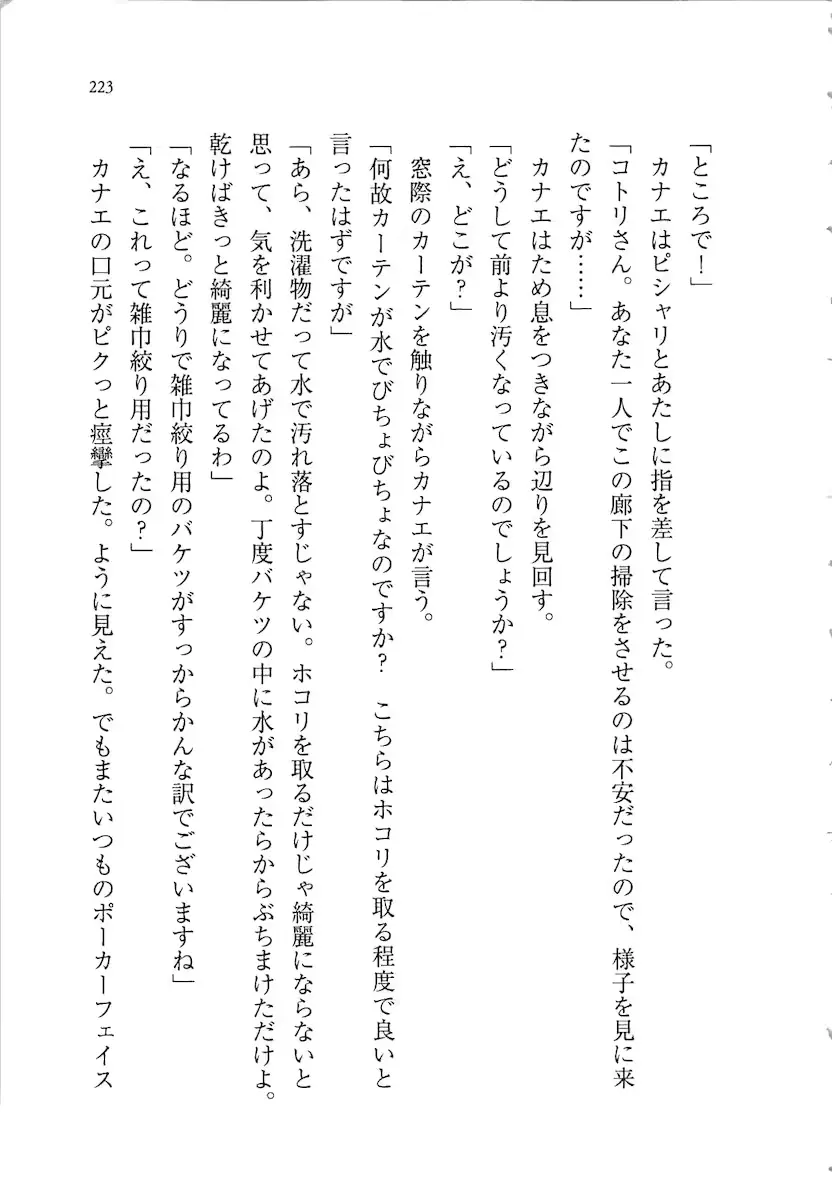 223
「ところで！」
カナエはピシャリとあたしに指を差して言った。
「コトリさん。あなた一人でこの廊下の掃除をさせるのは不安だったので、様子を見に来
たのですが……」
カナエはため息をつきながら辺りを見回す。
「どうして前より汚くなっているのでしょうか？」
「え、どこが？」
窓際のカーテンを触りながらカナエが言う。
「何故カーテンが水でびちょびちょなのですか？　こちらはホコリを取る程度で良いと
言ったはずですが」
「あら、洗濯物だって水で汚れ落とすじゃない。ホコリを取るだけじゃ綺麗にならないと
思って、気を利かせてあげたのよ。丁度バケツの中に水があったらからぶちまけただけよ。
乾けばきっと綺麗になってるわ」
「なるほど。どうりで雑巾絞り用のバケツがすっからかんな訳でございますね」
「え、これって雑巾絞り用だったの？」
カナエの口元がピクっと痙攣した。ように見えた。でもまたいつものポーカーフェイス